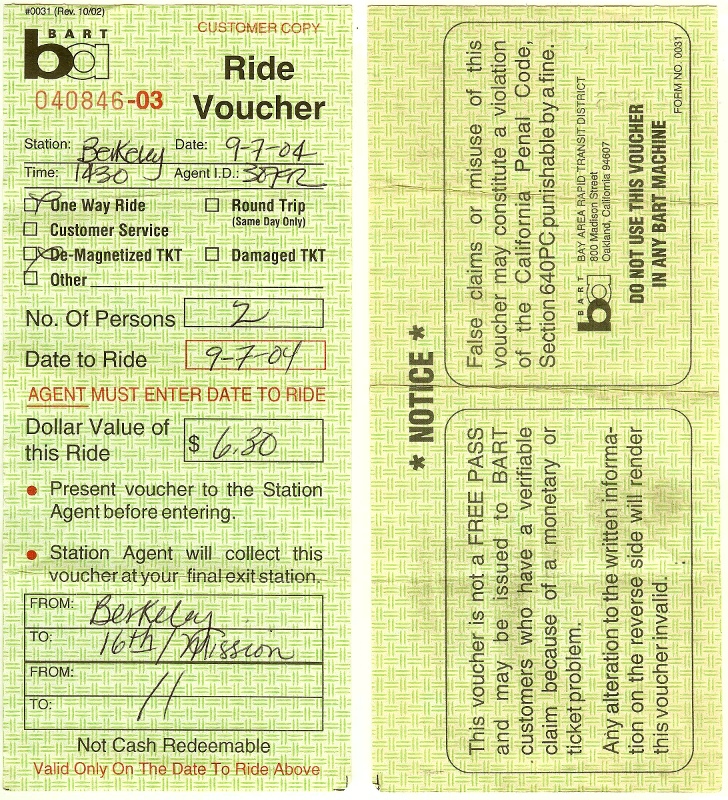 #0031 (Rev. 10/02)
CUSTOMER COPY
BART
ba
Ride
Voucher
040846-03
Station: Berkeley Date: 9-7-04
Time: 1430 Agent I.D.:
One Way Ride Round Trip
(Same Day Only)
Customer Service
De-Magnetized TKT Damaged TKT
Other
No. Of Persons 2
Date to Ride 9-7-04
AGENT MUST ENTER DATE TO RIDE
Dollar Value of
this Ride $ 6.30
Present voucher to the Station
Agent before entering.
Station Agent will collect this
voucher at your final exit station.
FROM: Berkeley
TO: 16th/Mission
FROM:
TO: //
Not Cash Redeemable
Valid Only On The Date To Ride Above
* NOTICE *
This voucher is not a FREE PASS
and may be issued to BART
customers who have a verifiable
claim because of a monetary or
ticket problem.
Any alteration to the written informa-
tion on the reverse side will render
this voucher invalid.
False claims or misuse of this
voucher may constitute a violation
of the California Penal Code,
Section 640PC punishable by a fine.
BART
ba
BAY AREA RAPID TRANSIT DISTRICT
800 Madison Street
Oakland, California 94607
DO NOT USE THIS VOUCHER
IN ANY BART MACHINE
FORM NO. 0031